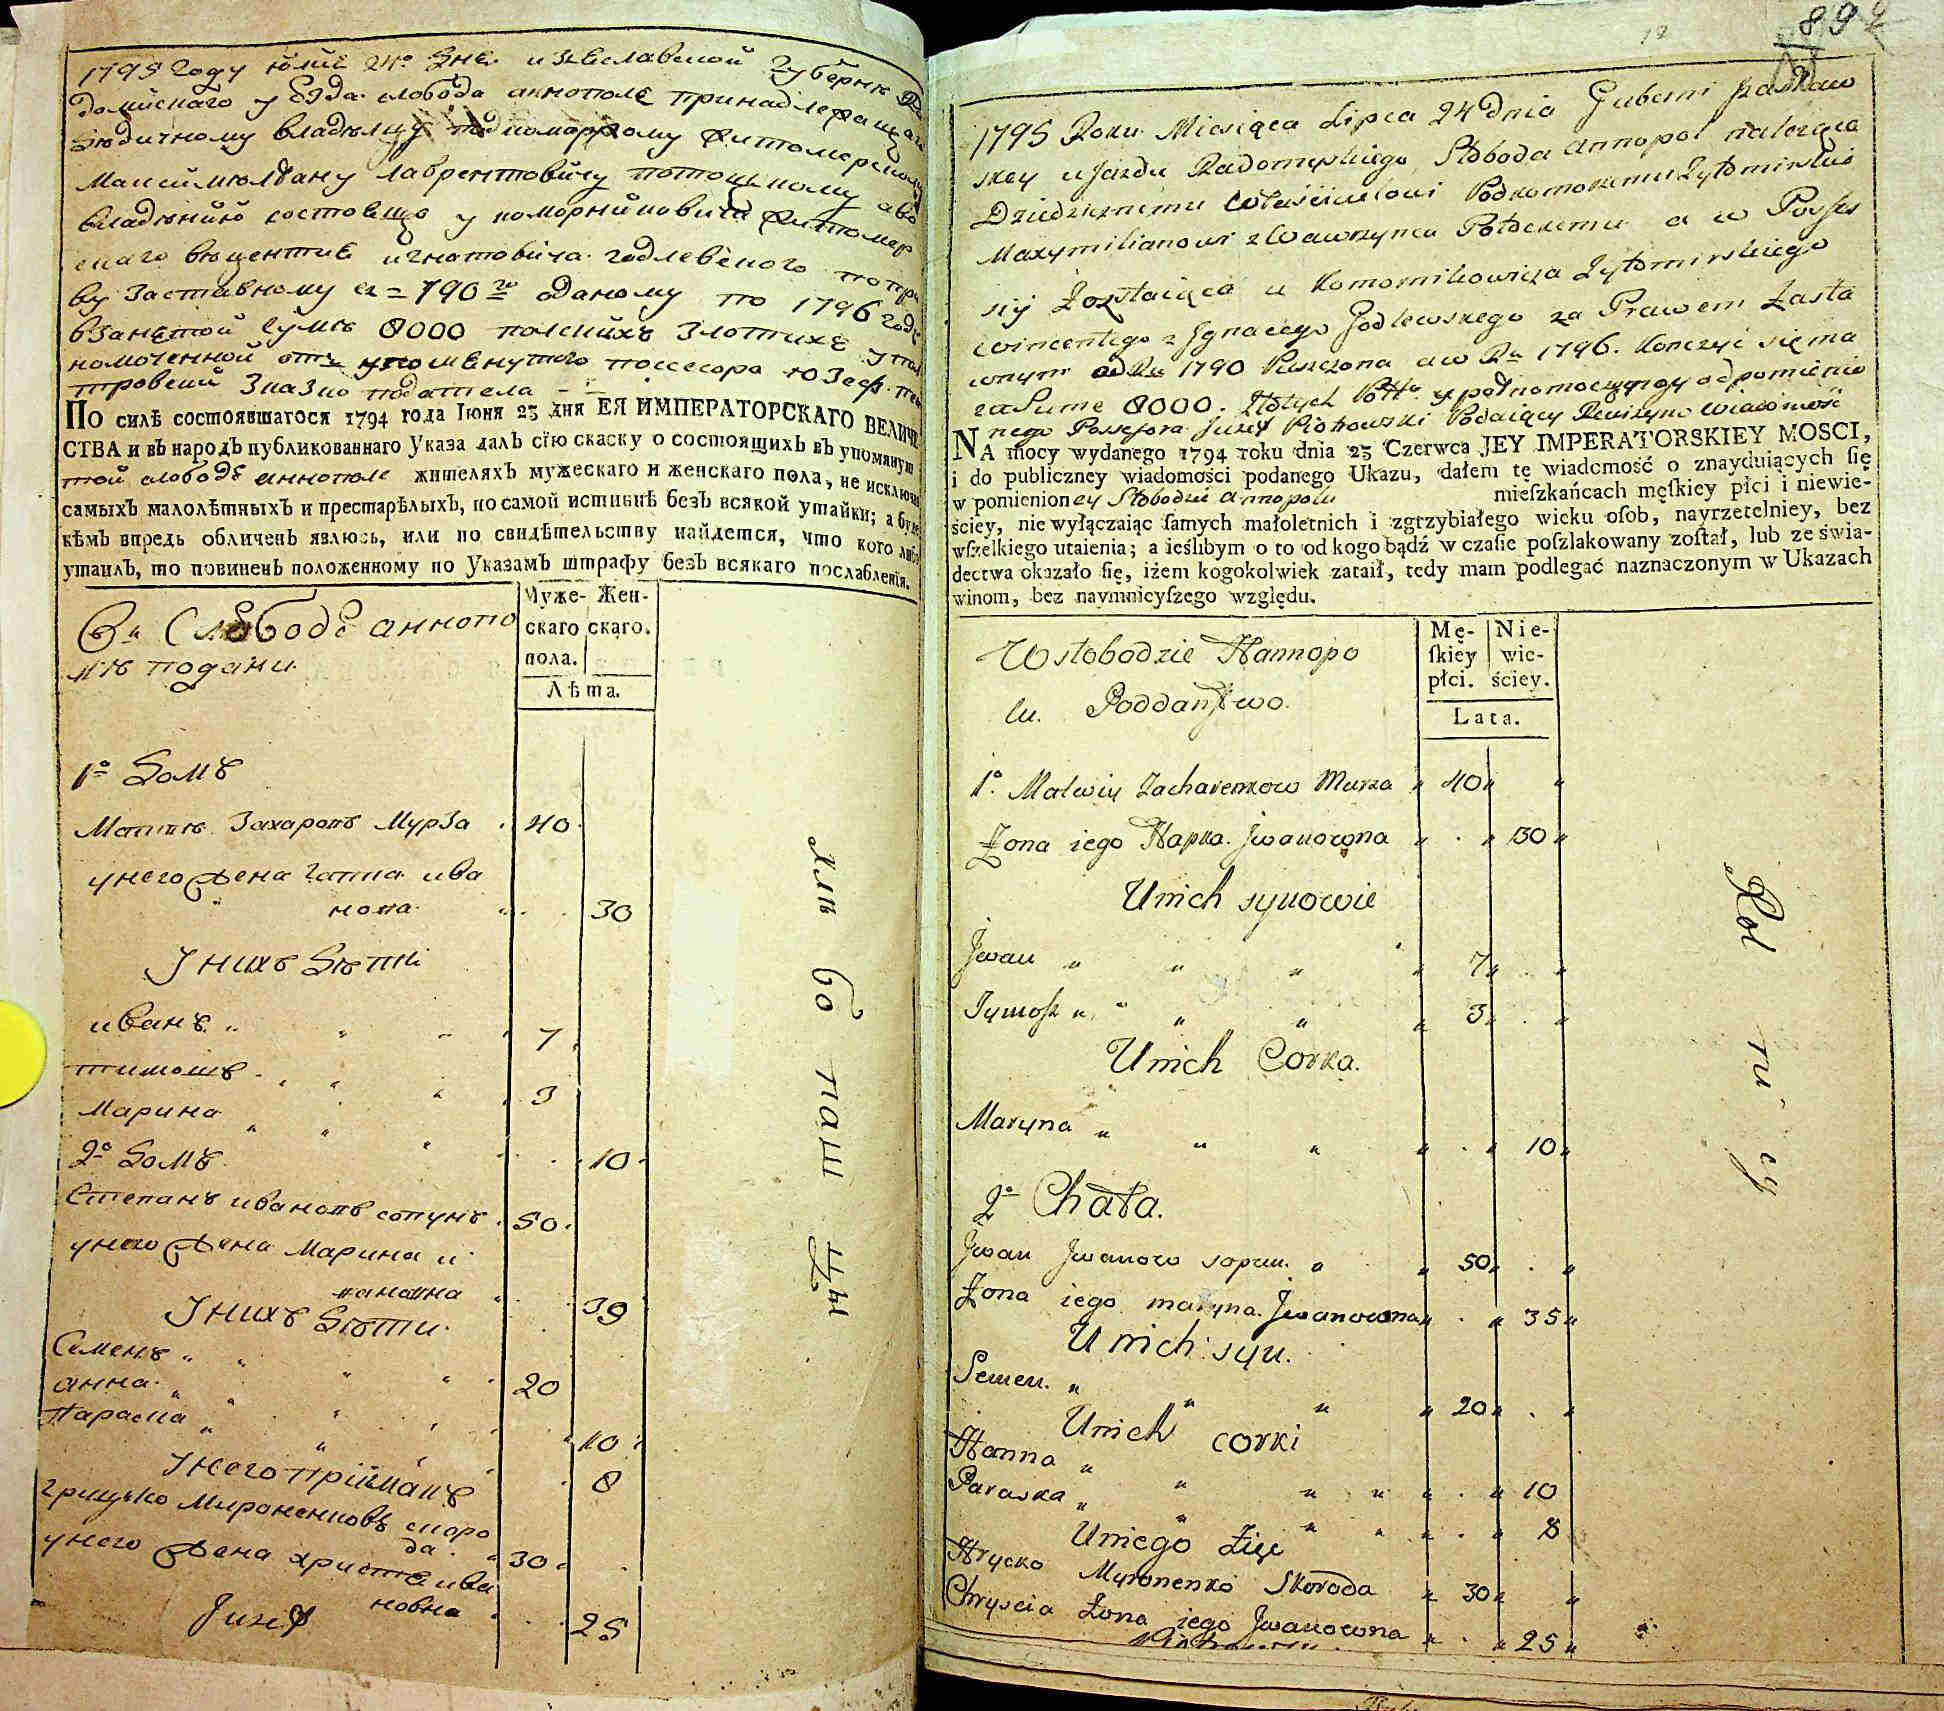 1795 Году юлiе 24º дне изяславской Губернi Ра
домыскаго уезда слобода аннополе принадлежащаго
дѣдичному владѣлцу подкоморому житомерскому
Максимилiану лаврентовичу
владѣнiю состоеще у коморниковича житомер
скаго викентие игнатовича годлевского по пра
ву заставному съ 1790го оданому по 1796 годъ
взанятой сумѣ 8000 полскихъ злотихъ упол
номоченной отъ упомянутого поссесора Юзефъ Пе
тровский Зказко подателя
ПО силѣ состоявшагося 1794 года Iюня 23 дня ЕЯ ИМПЕРАТОРСКАГО ВЕЛИЧЕ
СТВА и въ народъ публикованнаго Указа далъ сїю скаску о состоящихъ въ упомяну
той слободе аннополе жителяхъ мужескаго и женскаго пола, не исключая
самыхъ малолѣтныхъ и престарѣлыхъ, по самой истиннѣ безъ всякой утайки; а буде
кѣмъ впредь обличенъ явлюсь, или по свидѣтельству найдется, что кого либо
утаилъ, то повиненъ положенному по Указамъ штрафу безъ всякаго послабленїя.
Въ Слободе аннопо
лѣ подани
Муже- Жен-
скаго скаго.
пола.
Лѣта.
1º Домъ
Матвѣ Захаровъ Мурза 40
унего жена гапка ива
нова 30
Унихъ Дѣти
иванъ 7
тимошъ 3
Марина 10
2º Домъ
Степанъ ивановъ сопунъ 50
унего жена Марина и
вановна 39
Унихъ Дѣти
Семенъ 20
анна 10
Параска 8
Унего Прiймакъ
грицько Мироненковъ скоро
да 30
унего жена христя ива
новна 25
Juzef
Хлѣ бо паш цы
894
12
1795 Roku Miesiąca Lipca 24 Dnia Guberni Izasław
skey ujazdu Radomyslskiego Słoboda Annopol należąca
Dziedzicznemu Właścicielowi Podkomorzemu Żytomirskie
Maxymilianowi z Wawrzynca Potockemu a w Posses
sij Zostaiąca u Komornikowicza Żytomirskiego
Wincentego z Jgnacego Godlewskego za Prawem Zasta
wnym od Ru 1790 Puszczona a w Ru 1796. Konczyć się ma
za Sume 8000. Złotych Polk. upełnomocniony od pomienio
nego Possesora Juzef Piotrowski Podaiący Rewizyno Wiadomość
NA mocy wydanego 1794 roku dnia 23 Czerwca JEY IMPERATORSKIEY MOSCI,
i do publiczney wiadomości podanego Ukazu, dałem tę wiadomość o znayduiących ſię
w pomienioney Słobodzie Annopolu mieſzkańcach męſkiey płci i niewie-
ściey, nie wyłączaiąc ſamych małoletnich i zgrzybiałego wieku oſob, nayrzetelniey, bez
wſzelkiego utaienia; a ieślibym o to od kogo bądź w czaſie poſzlakowany zoſtał, lub ze świa-
dectwa okazało ſię, iżem kogokolwiek zataił, tedy mam podlegać naznaczonym w Ukazach
winom, bez naymnieyſzego względu.
W słobodzie Hannopo
lu. Poddanſtwo.
Mę- Nie-
ſkiey wie-
płci. ściey.
Lata.
1º. Matwiy Zacharenkow Murza 40
Żona iego Hapka Jwanowna 30
Unich synowie
Jwan 7
Tymosz 3
Unich Corka.
Maryna 10
2º Chata.
Jwan Jwanow sopun 50
Żona iego maryna Jwanowna 35
Unich syn.
Semen 20
Unich corki
Hanna 10
Paraska 8
Uniego Zięć
Hrycko Myronenko Skoroda 30
Chryscia Żona iego Jwanowna 25
Piotrowski
Rol ni cy